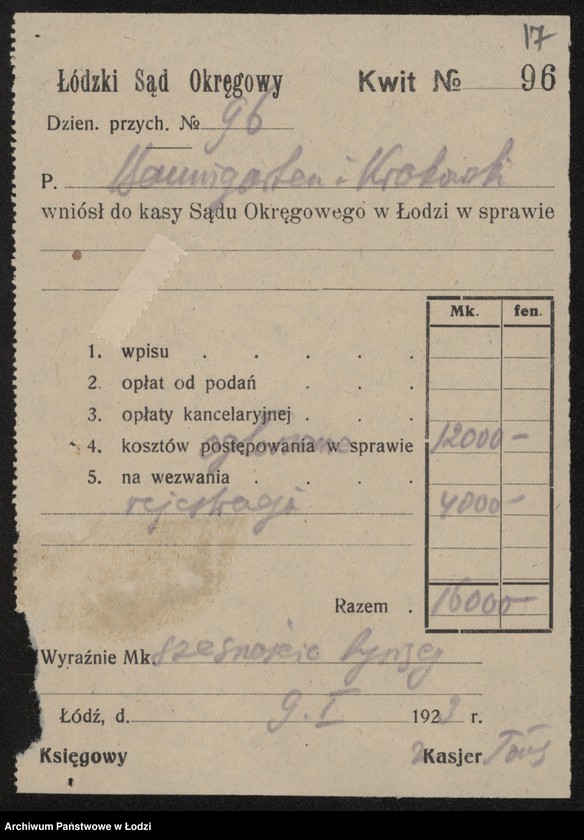 17
Łódzki Sąd Okręgowy Kwit № 96
Dzien. przych. № 96
P. Baumgarten i Krotowski
wniósł do kasy Sądu Okręgowego w Łodzi w sprawie
Mk. fen.
1. wpisu . . . . .
2. opłat od podań . . .
3. opłaty kancelaryjnej . . .
4. kosztów postępowania w sprawie 12000 –
5. na wezwania . . . .
rejestracja 4000 –
Razem . 16000 –
Wyraźnie Mk. szesnaście tysięcy
Łódź, d. 9. I 1923 r.
Księgowy Kasjer
Archiwum Państwowe w Łodzi